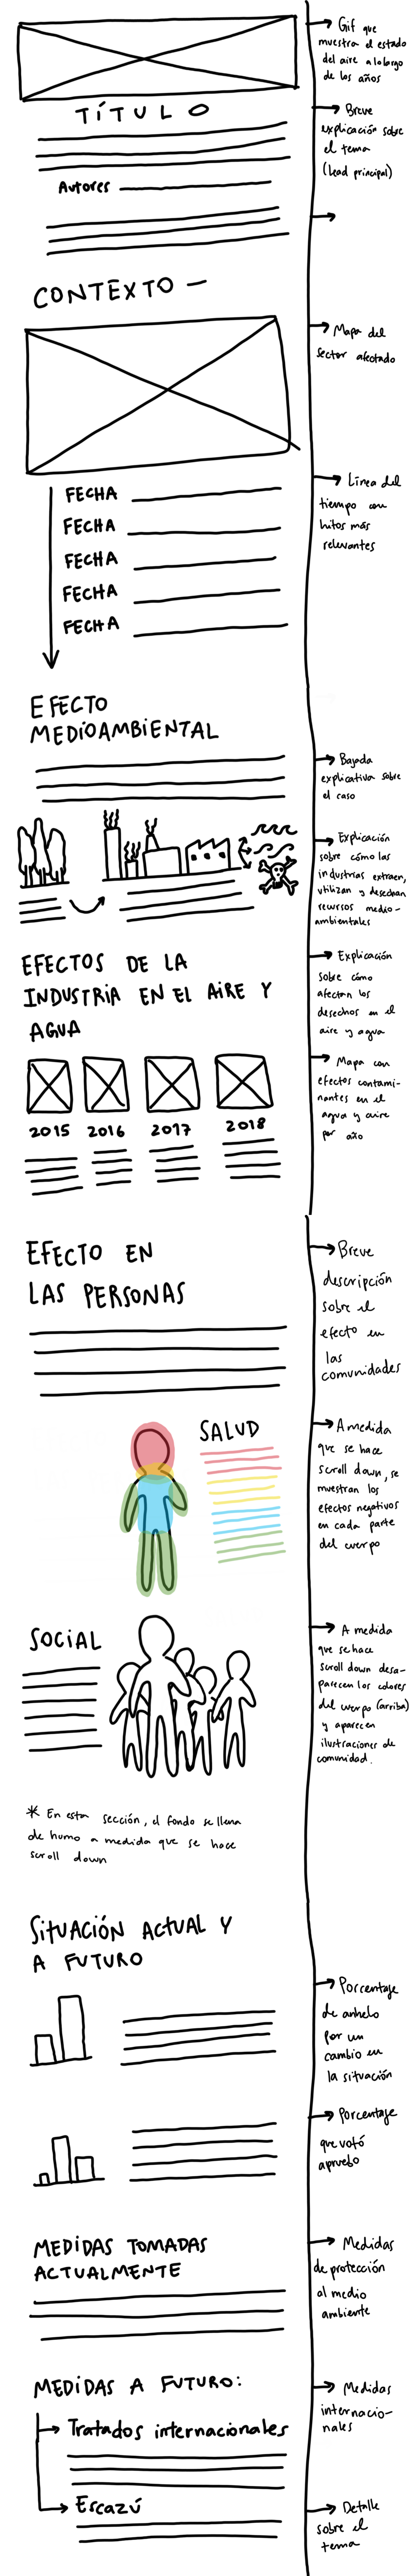 Gif que
muestra el estado
del aire a lo largo
de los años
TÍTULO
Breve
explicación sobre
el tema
(lead principal)
Autores
CONTEXTO -
Mapa del
sector afectado
Línea del
tiempo con
hitos más
relevantes
FECHA
FECHA
FECHA
FECHA
FECHA
EFECTO
MEDIOAMBIENTAL
Bajada
explicativa sobre
el caso
Explicación
sobre cómo las
industrias extraen,
utilizan y desechan
recursos medio-
ambientales
EFECTOS DE LA
INDUSTRIA EN EL AIRE Y
AGUA
Explicación
sobre cómo
afectan los
desechos en el
aire y agua
Mapa con
efectos contami-
nantes en el
agua y aire
por año
2015 2016 2017 2018
EFECTO EN
LAS PERSONAS
Breve
descripción
sobre el
efecto en
las
comunidades
SALUD
A medida
que se hace
scroll down, se
muestran los
efectos negativos
en cada parte
del cuerpo
SOCIAL
A medida
que se hace
scroll down desa-
parecen los colores
del cuerpo (arriba)
y aparecen
ilustraciones de
comunidad.
* En esta sección, el fondo se llena
de humo a medida que se hace
scroll down
SITUACIÓN ACTUAL Y
A FUTURO
Porcentaje
de anhelo
por un
cambio en
la situación
Porcentaje
que votó
apruebo
MEDIDAS TOMADAS
ACTUALMENTE
Medidas
de protección
al medio
ambiente
MEDIDAS A FUTURO:
Medidas
internacio-
nales
Tratados internacionales
Escazú
Detalle
sobre el
tema